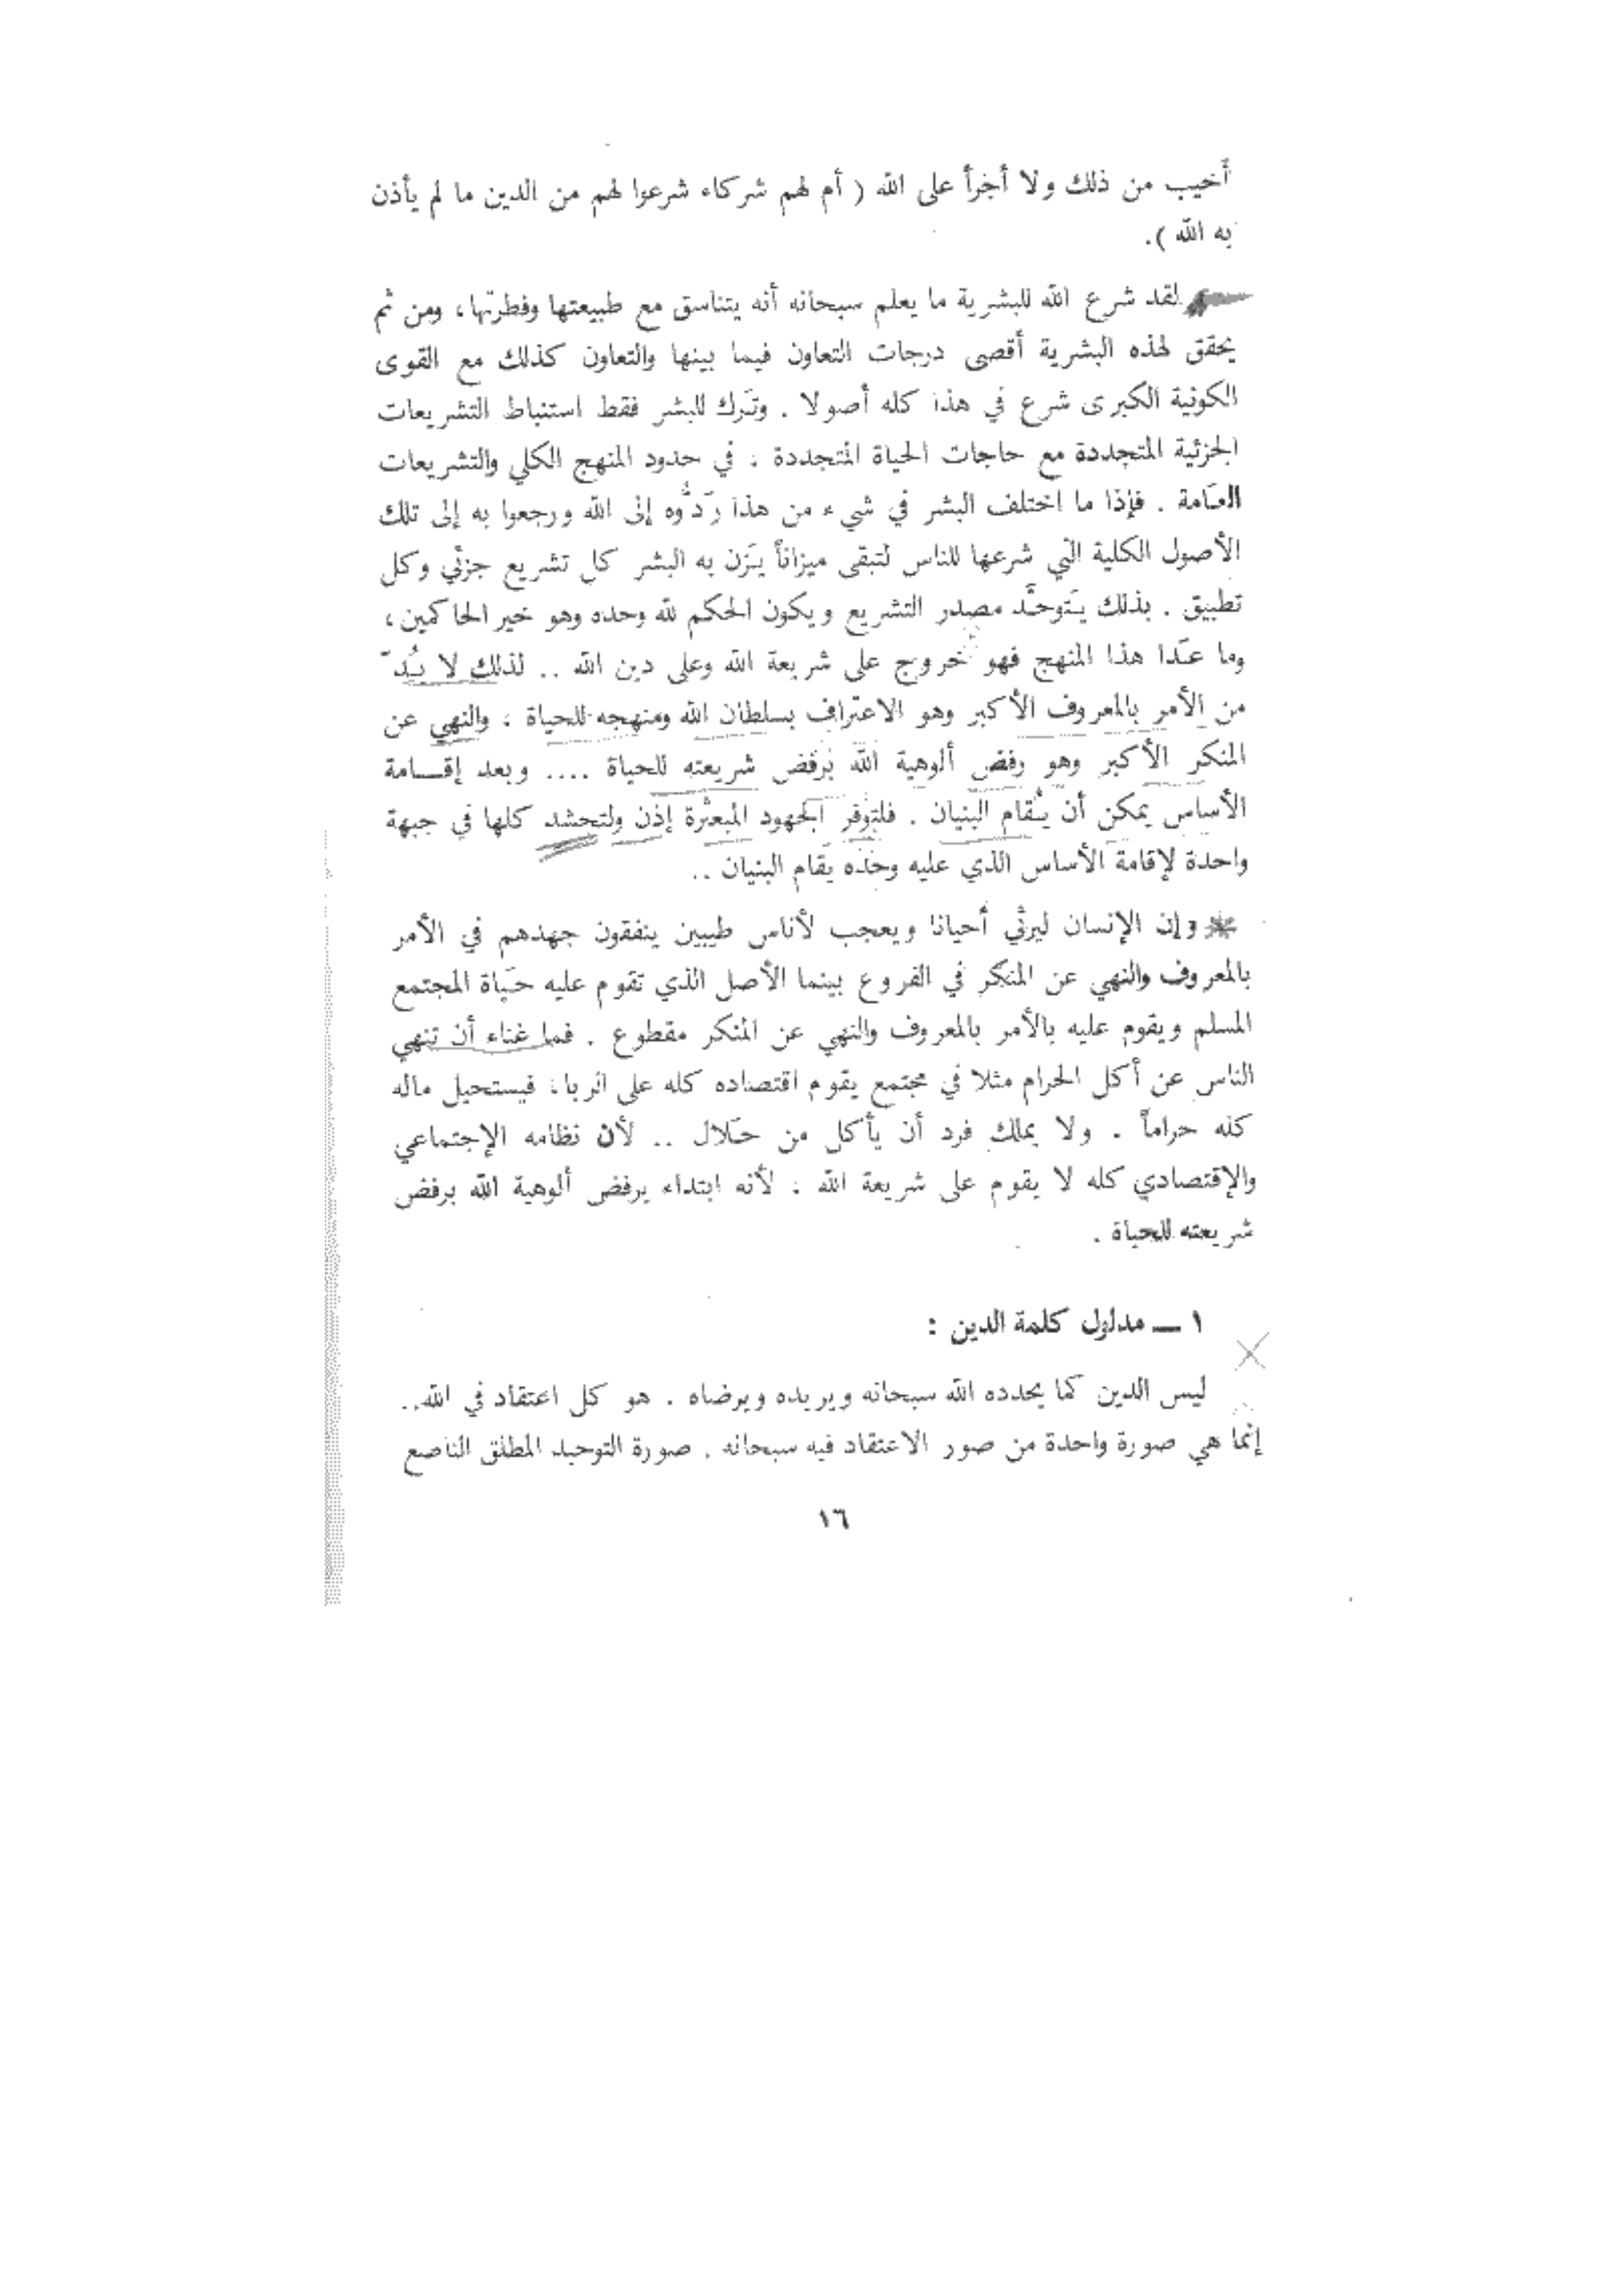 أخيب من ذلك ولا أجرأ على الله ( أم لهم شركاء شرعوا لهم من الدين ما لم يأذن
به الله ).
لقد شرع الله للبشرية ما يعلم سبحانه أنه يتناسق مع طبيعتها وفطرتها ، ومن ثم
يحقق لهذه البشرية أقصى درجات التعاون فيما بينها والتعاون كذلك مع القوى
الكونية الكبرى شرع في هذا كله أصولا . وتَرك للبشر فقط استنباط التشريعات
الجزئية المتجددة مع حاجات الحياة المتجددة ، في حدود المنهج الكلي والتشريعات
العَامة . فإذا ما اختلف البشر في شيء من هذا رَدُّوه إلى الله ورجعوا به إلى تلك
الأصول الكلية التي شرعها للناس لتبقى ميزاناً يَزن به البشر كل تشريع جزئي وكل
تطبيق . بذلك يَتوحَّد مصدر التشريع ويكون الحكم لله وحده وهو خير الحاكمين ،
وما عَدا هذا المنهج فهو خروج على شريعة الله وعلى دين الله .. لذلك لا بُدّ
من الأمر بالمعروف الأكبر وهو الاعتراف بسلطان الله ومنهجه للحياة ، والنهي عن
المنكر الأكبر وهو رفض ألوهية الله برفض شريعته للحياة .... وبعد إقـــامة
الأساس يمكن أن يُقام البنيان . فلتوفر الجهود المبعثرة إذن ولتحشد كلها في جبهة
واحدة لإقامة الأساس الذي عليه وحده يقام البنيان ..
* وإن الإنسان ليرثي أحيانا ويعجب لأناس طيبين ينفقون جهدهم في الأمر
بالمعروف والنهي عن المنكر في الفروع بينما الأصل الذي تقوم عليه حَياة المجتمع
المسلم ويقوم عليه بالأمر بالمعروف والنهي عن المنكر مقطوع . فما غناء أن تنهي
الناس عن أكل الحرام مثلا في مجتمع يقوم اقتصاده كله على الربا ، فيستحيل ماله
كله حراماً . ولا يملك فرد أن يأكل من حَلال .. لأن نظامه الإجتماعي
والإقتصادي كله لا يقوم على شريعة الله ، لأنه ابتداء يرفض ألوهية الله برفض
شريعته للحياة .
١ ــ مدلول كلمة الدين :
ليس الدين كما يحدده الله سبحانه ويريده ويرضاه . هو كل اعتقاد في الله..
إنما هي صورة واحدة من صور الاعتقاد فيه سبحانه . صورة التوحيد المطلق الناصع
١٦